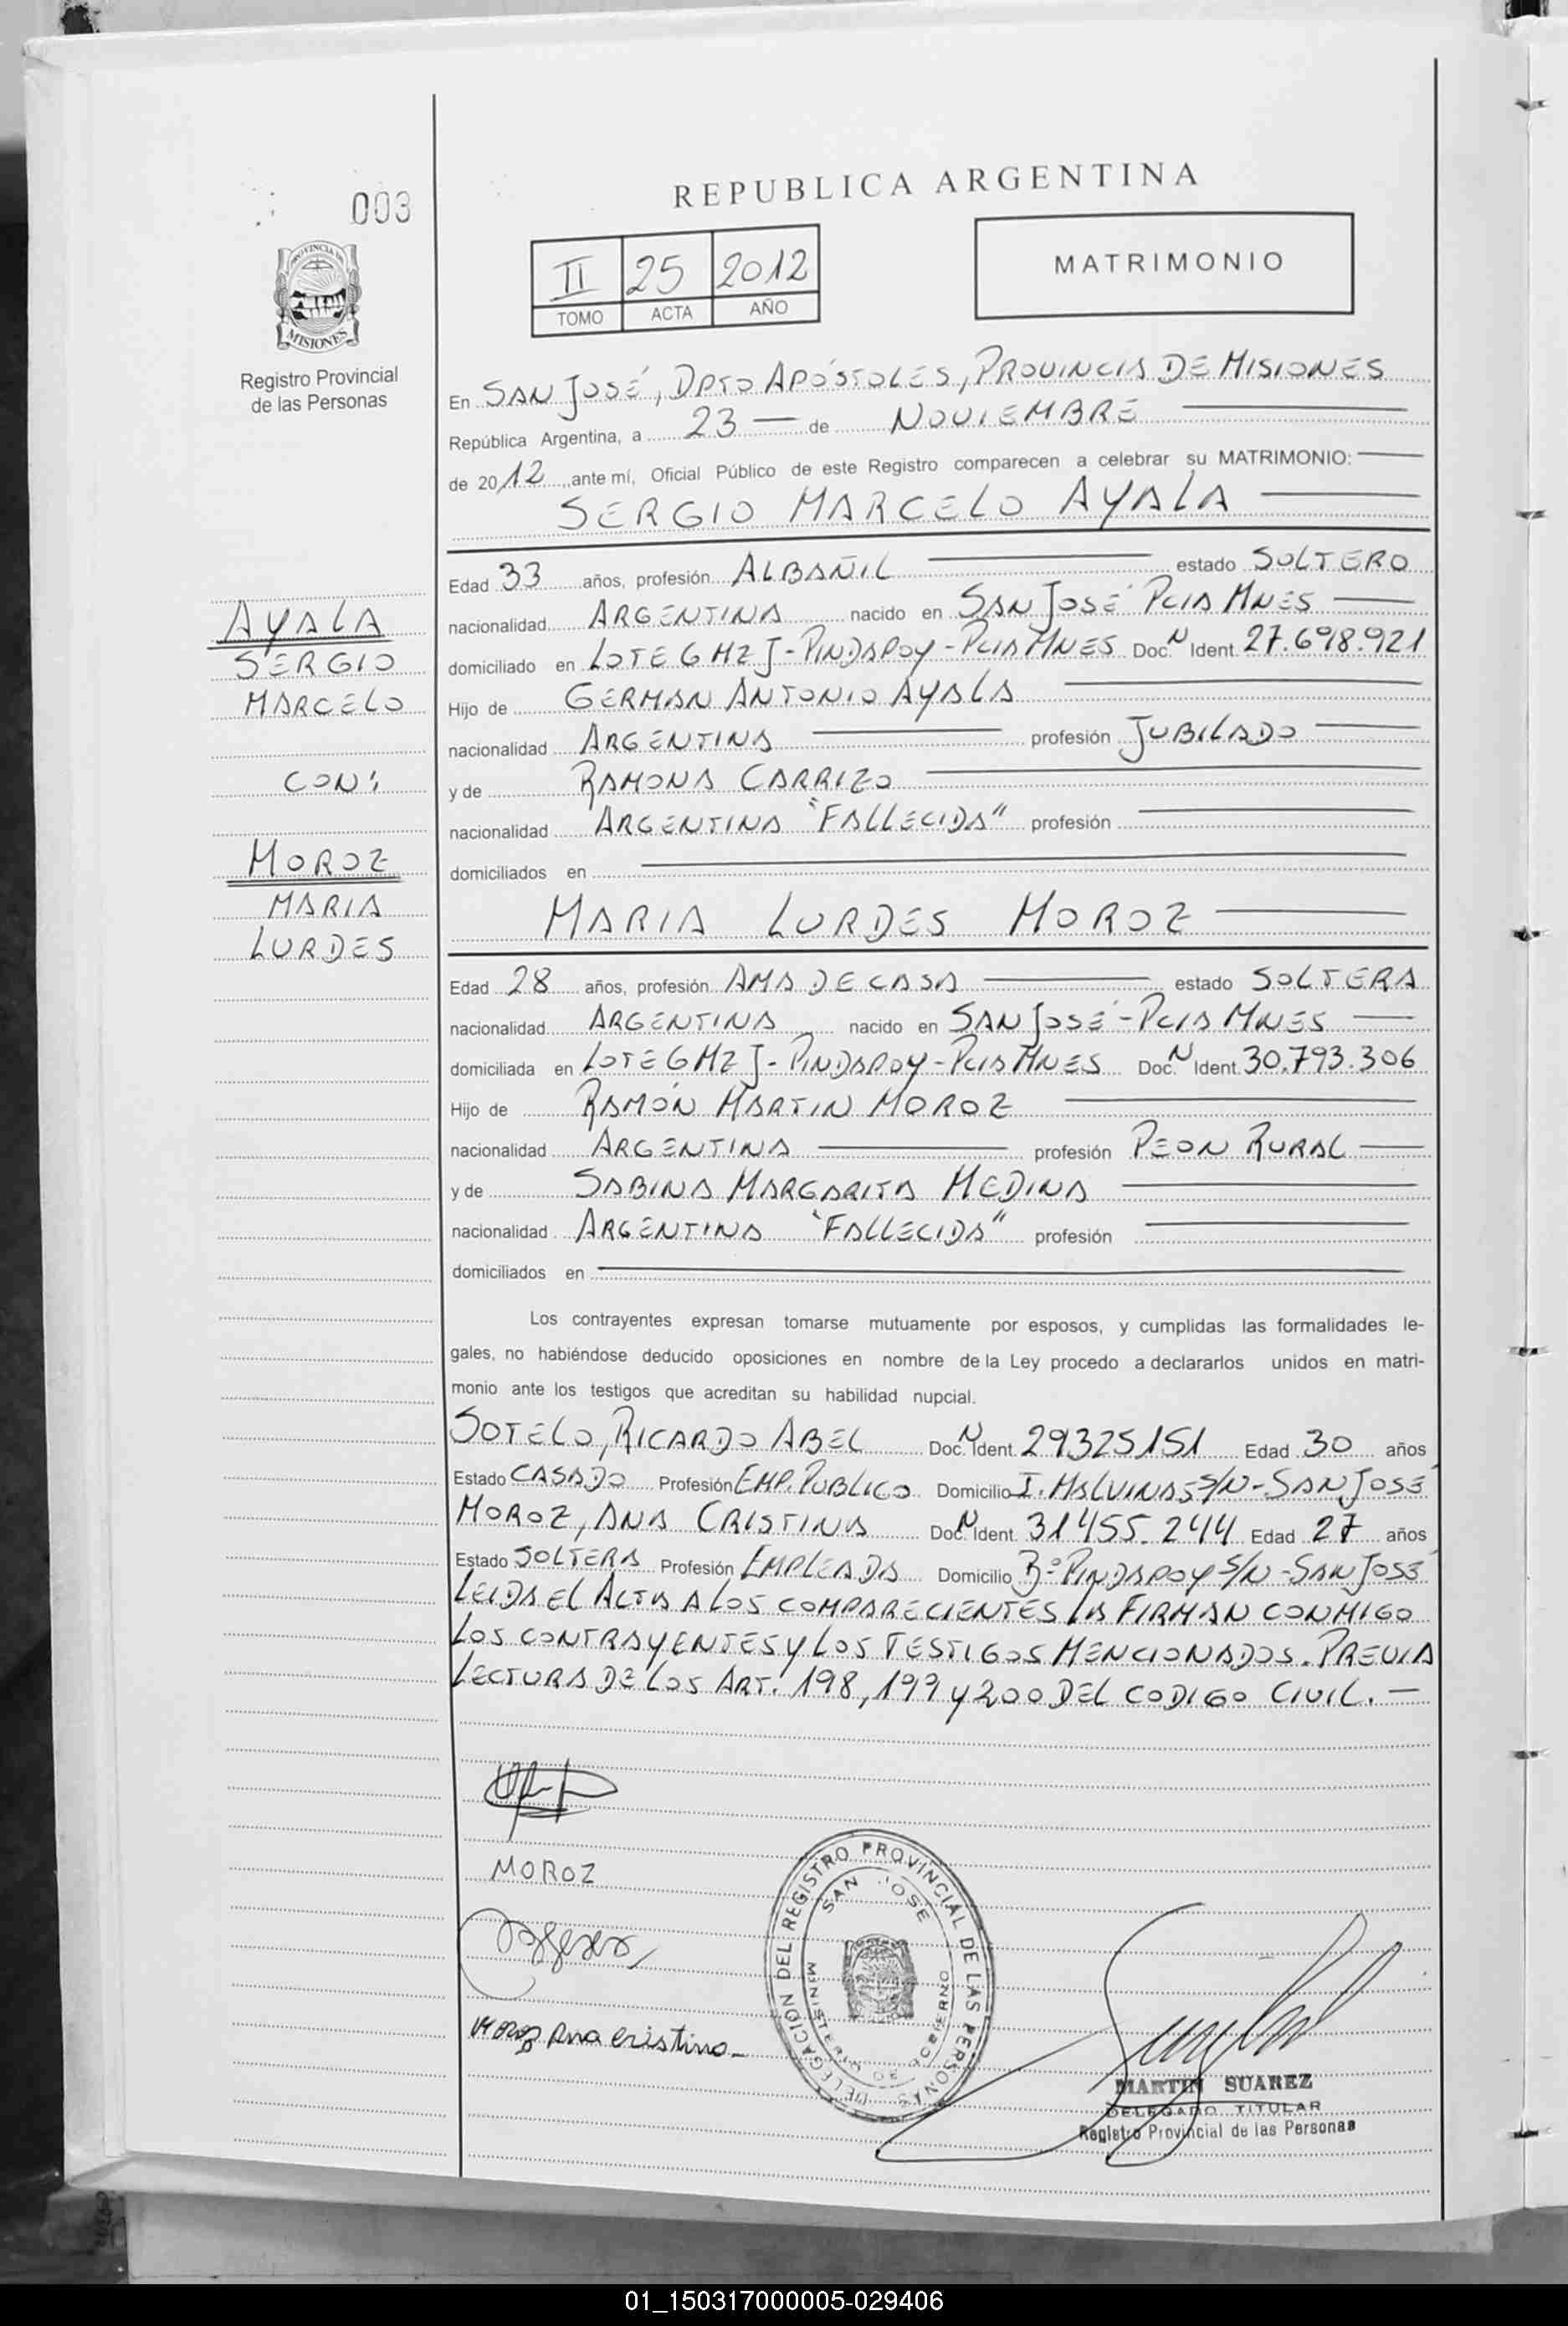 003
PROVINCIA DE
MISIONES
Registro Provincial
de las Personas
AYALA
SERGIO
MARCELO
CON:
MOROZ
MARIA
LURDES
REPUBLICA ARGENTINA
II 25 2012
TOMO ACTA AÑO
MATRIMONIO
En SAN JOSÉ, DPTO APÓSTOLES, PROVINCIA DE MISIONES
República Argentina, a 23 — de NOVIEMBRE
de 2012 ante mí, Oficial Público de este Registro comparecen a celebrar su MATRIMONIO:
SERGIO MARCELO AYALA
Edad 33 años, profesión ALBAÑIL estado SOLTERO
nacionalidad ARGENTINA nacido en SAN JOSÉ PCIA MNES
domiciliado en LOTE 6 MZ J - PINDAPOY - PCIA MNES Doc. N Ident. 27.698.921
Hijo de GERMAN ANTONIO AYALA
nacionalidad ARGENTINA profesión JUBILADO
y de RAMONA CARRIZO
nacionalidad ARGENTINA "FALLECIDA" profesión
domiciliados en
MARIA LURDES MOROZ
Edad 28 años, profesión AMA DE CASA estado SOLTERA
nacionalidad ARGENTINA nacido en SAN JOSÉ - PCIA MNES
domiciliada en LOTE 6 MZ J - PINDAPOY - PCIA MNES Doc. N Ident. 30.793.306
Hijo de RAMÓN MARTIN MOROZ
nacionalidad ARGENTINA profesión PEON RURAL
y de SABINA MARGARITA MEDINA
nacionalidad ARGENTINA "FALLECIDA" profesión
domiciliados en
Los contrayentes expresan tomarse mutuamente por esposos, y cumplidas las formalidades le-
gales, no habiéndose deducido oposiciones en nombre de la Ley procedo a declararlos unidos en matri-
monio ante los testigos que acreditan su habilidad nupcial.
SOTELO, RICARDO ABEL Doc. N Ident. 29325151 Edad 30 años
Estado CASADO Profesión EMP. PUBLICO Domicilio I. MALVINAS S/N - SAN JOSÉ
MOROZ, ANA CRISTINA Doc. N Ident. 31455.244 Edad 27 años
Estado SOLTERA Profesión EMPLEADA Domicilio Bº PINDAPOY S/N - SAN JOSÉ
LEIDA EL ACTA A LOS COMPARECIENTES LA FIRMAN CONMIGO
LOS CONTRAYENTES Y LOS TESTIGOS MENCIONADOS. PREVIA
LECTURA DE LOS ART. 198, 199 Y 200 DEL CODIGO CIVIL. —
MOROZ
Moroz Ana Cristina
DELEGACION DEL REGISTRO PROVINCIAL DE LAS PERSONAS
SAN JOSE
MINISTERIO DE GOBIERNO
MARTIN SUAREZ
DELEGADO TITULAR
Registro Provincial de las Personas
01_150317000005-029406